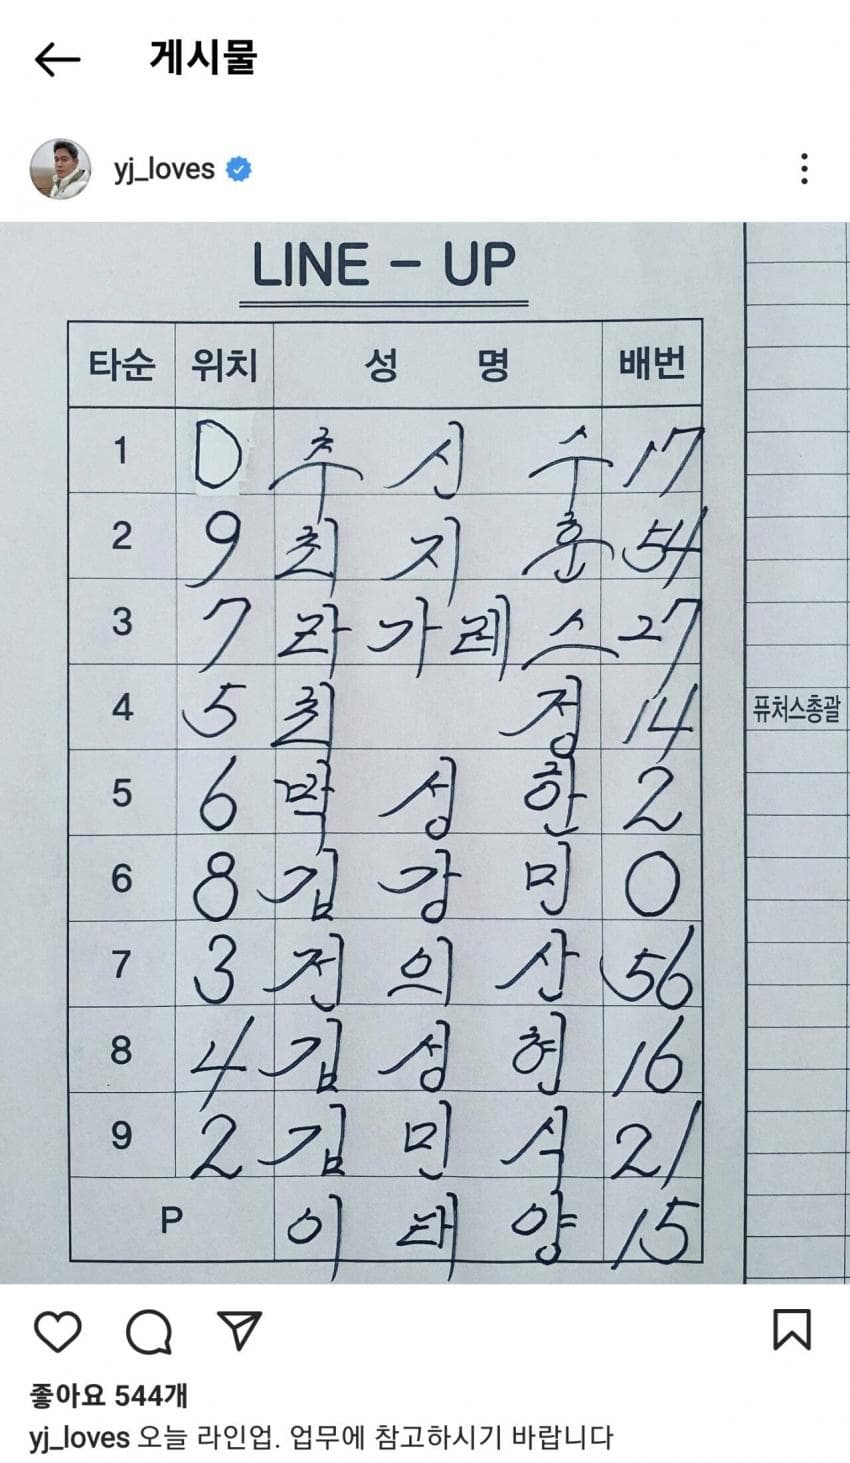 게시물
yj_loves
LINE - UP
타순 위치 성 명 배번
1 D 추 신 수 17
2 9 최 지 훈 54
3 7 라 가 레 스 27
4 5 최 정 14
퓨처스총괄
5 6 박 성 한 2
6 8 김 강 민 0
7 3 전 의 산 56
8 4 김 성 현 16
9 2 김 민 식 21
P 이 태 양 15
좋아요 544개
yj_loves 오늘 라인업. 업무에 참고하시기 바랍니다